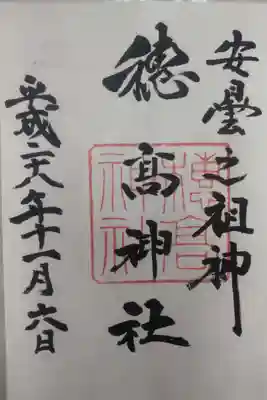 安曇之祖神
穂高神社
平成二十八年十一月六日